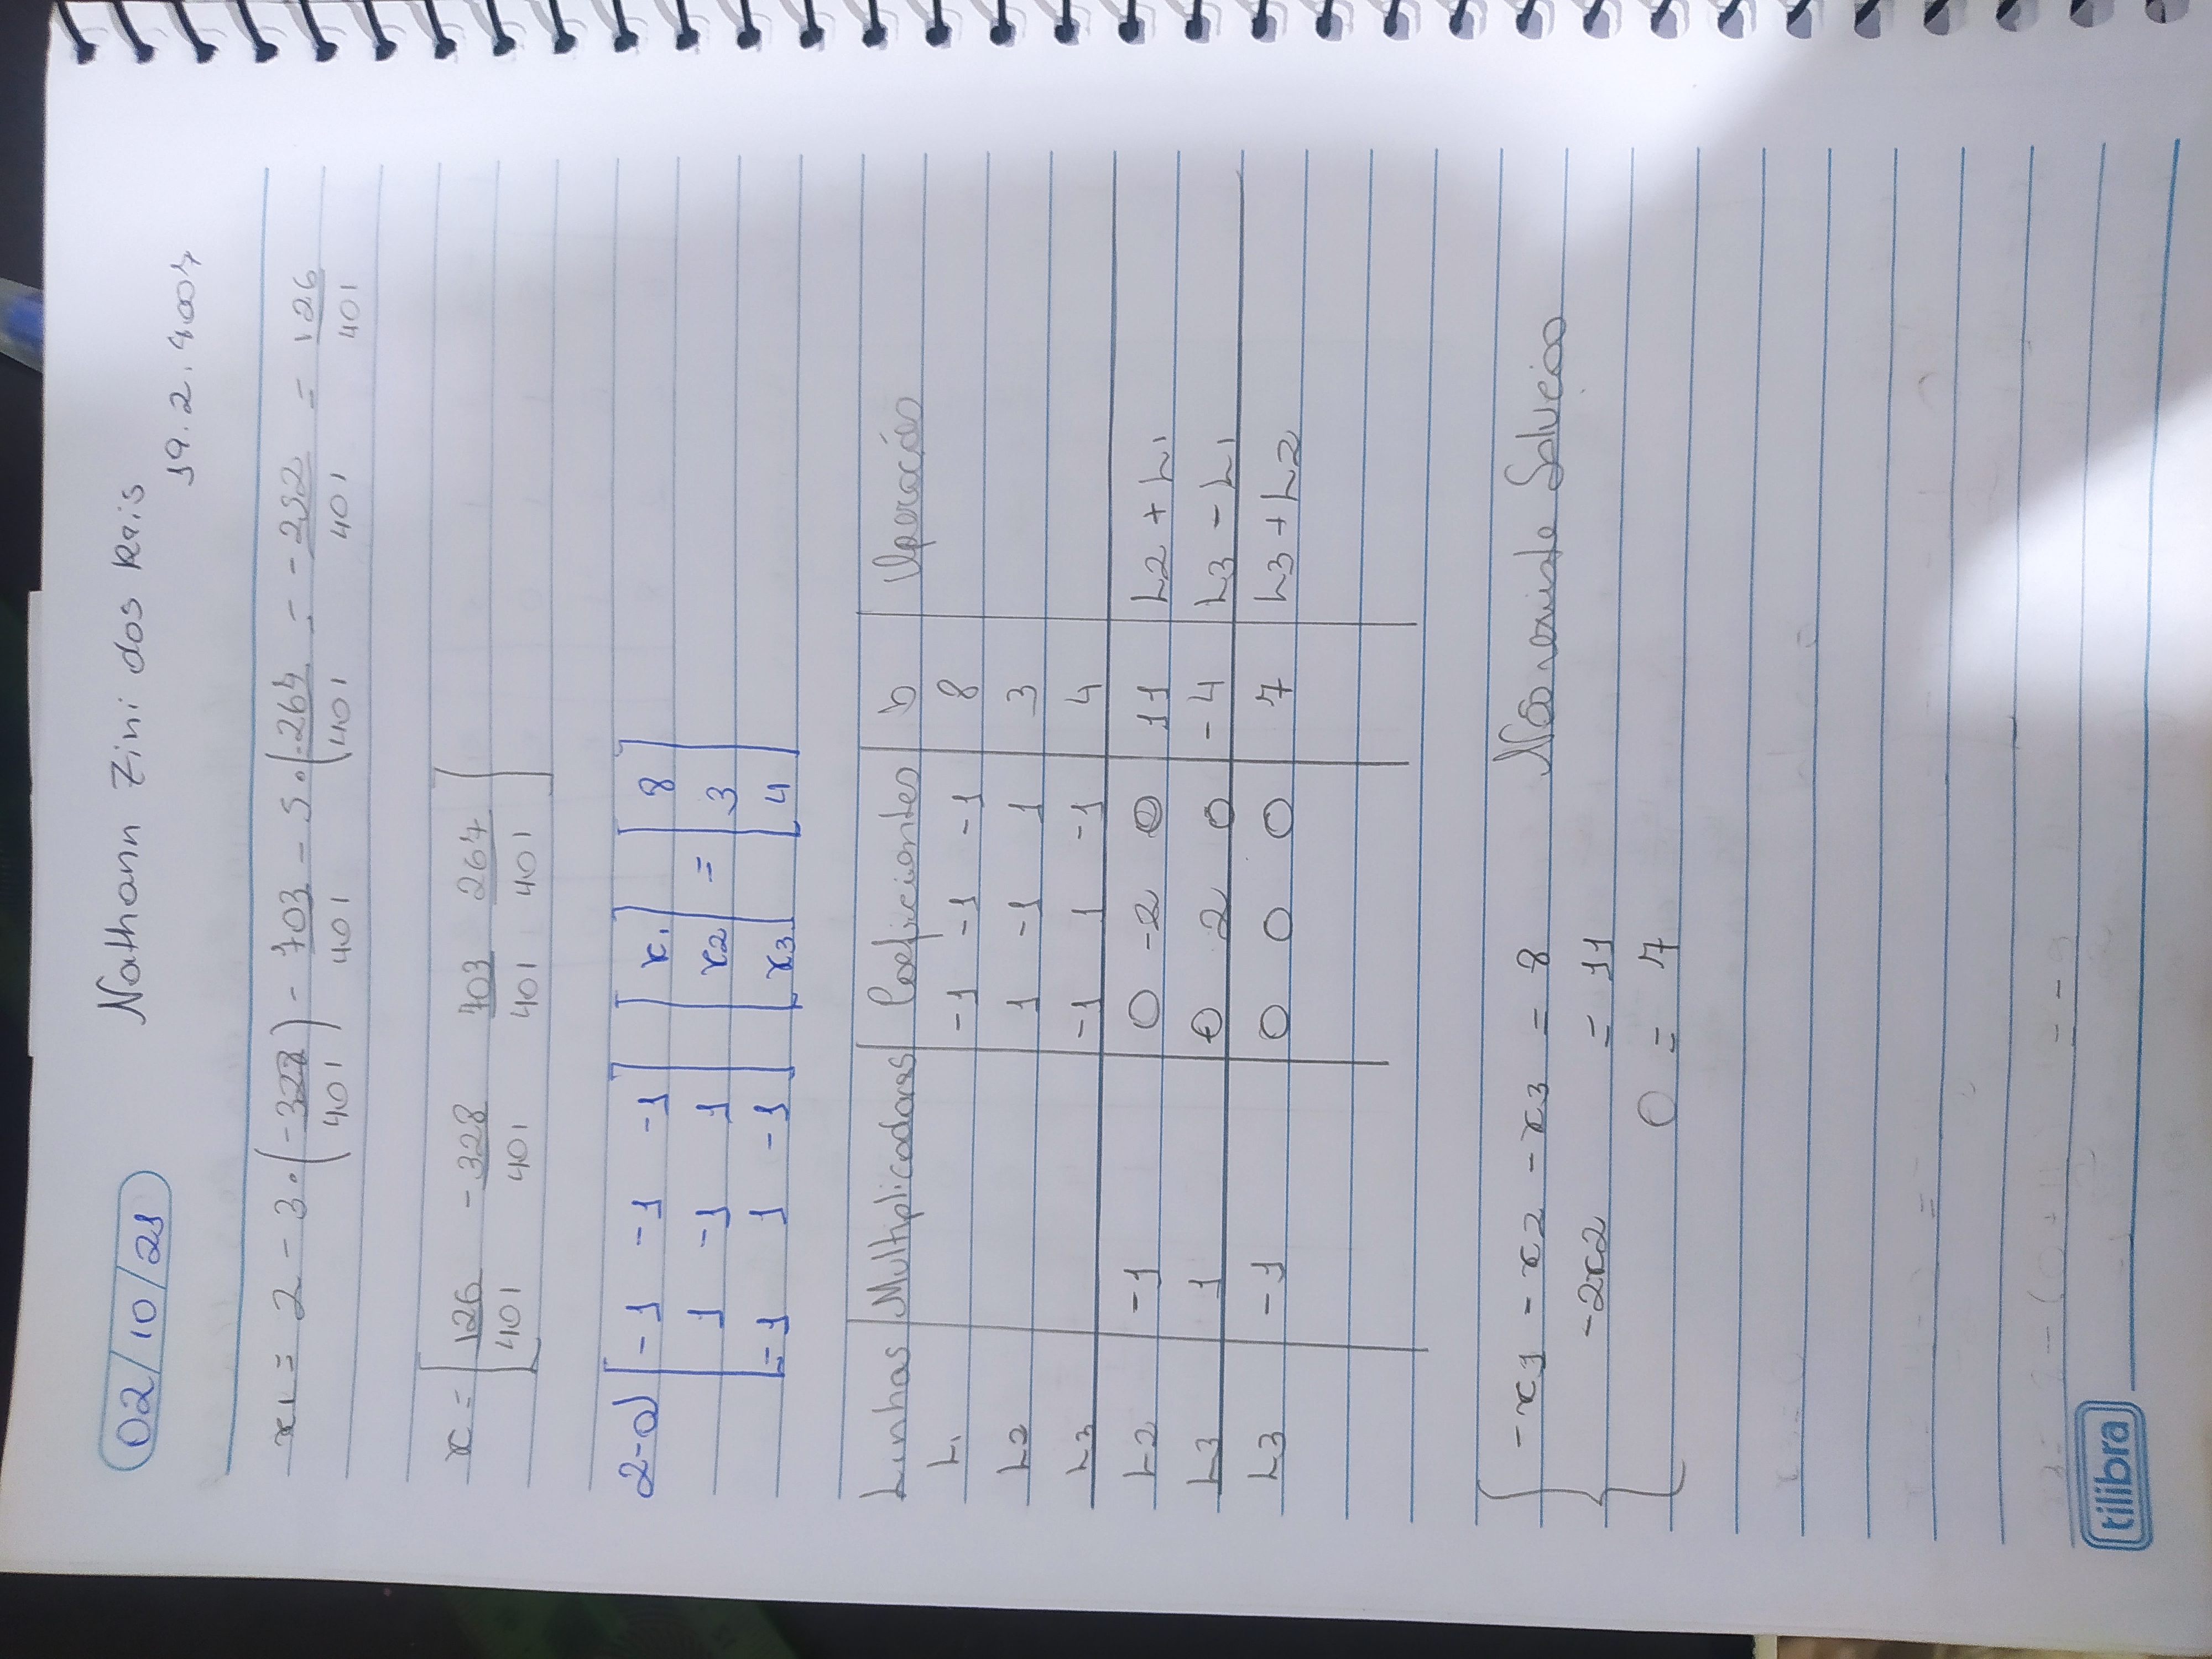 02/10/21
Nathann Zini dos Reis
19.2.4007
x1 = 2 - 3 . (-328/401) - 703/401 - 5 . (-264/401 = -252/401 = 126/401
x = [126/401 -328/401 703/401 264/401]
2-a) [-1 -1 -1] [x1] [8]
[1 -1 1] [x2] = [3]
[-1 1 -1] [x3] [4]
Linhas Multiplicadores Coeficientes b Operações
L1 -1 -1 -1 8
L2 1 -1 1 3
L3 -1 1 -1 4
L2 -1 0 -2 0 11 L2 + L1
L3 1 0 2 0 -4 L3 - L1
L3 -1 0 0 0 7 L3 + L2
-x1 - x2 - x3 = 8 Não existe Solução
-2x2 = 11
0 = 7
tilibra